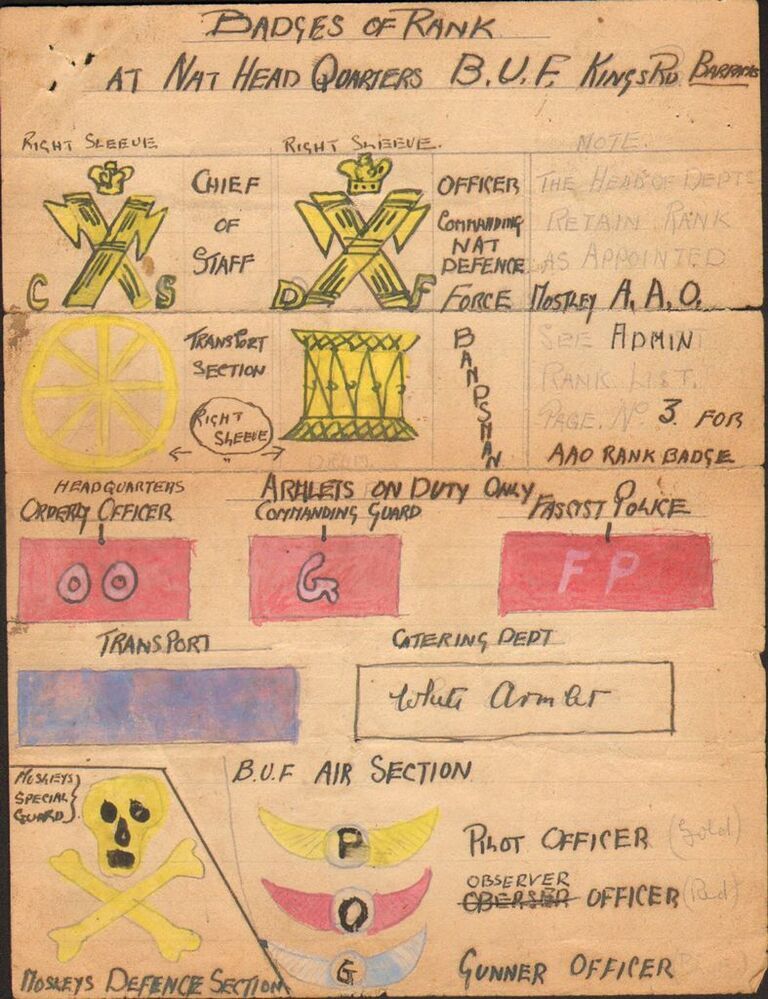 BADGES OF RANK
AT NAT HEAD QUARTERS B.U.F. KINGS RD BARRACKS
RIGHT SLEEVE
RIGHT SLEEVE.
NOTE.
CHIEF
OF
STAFF
C S
OFFICER
COMMANDING
NAT
DEFENCE
FORCE
D F
THE HEAD OF DEPTS
RETAIN RANK
AS APPOINTED
MOSTLEY A.A.O.
SEE ADMIN
RANK LIST.
PAGE. No 3. FOR
AAO RANK BADGE
TRANSPORT
SECTION
RIGHT
SLEEVE
BANDSMAN
DRUM
ARMLETS ON DUTY ONLY
HEADQUARTERS
ORDERLY OFFICER
COMMANDING GUARD
FASCIST POLICE
OO
G
FP
TRANSPORT
CATERING DEPT
White Armlet
MOSLEYS
SPECIAL
GUARD
B.U.F AIR SECTION
P
PILOT OFFICER (Gold)
OBSERVER
O
OBERSER OFFICER (Red)
G
GUNNER OFFICER
MOSLEYS DEFENCE SECTION